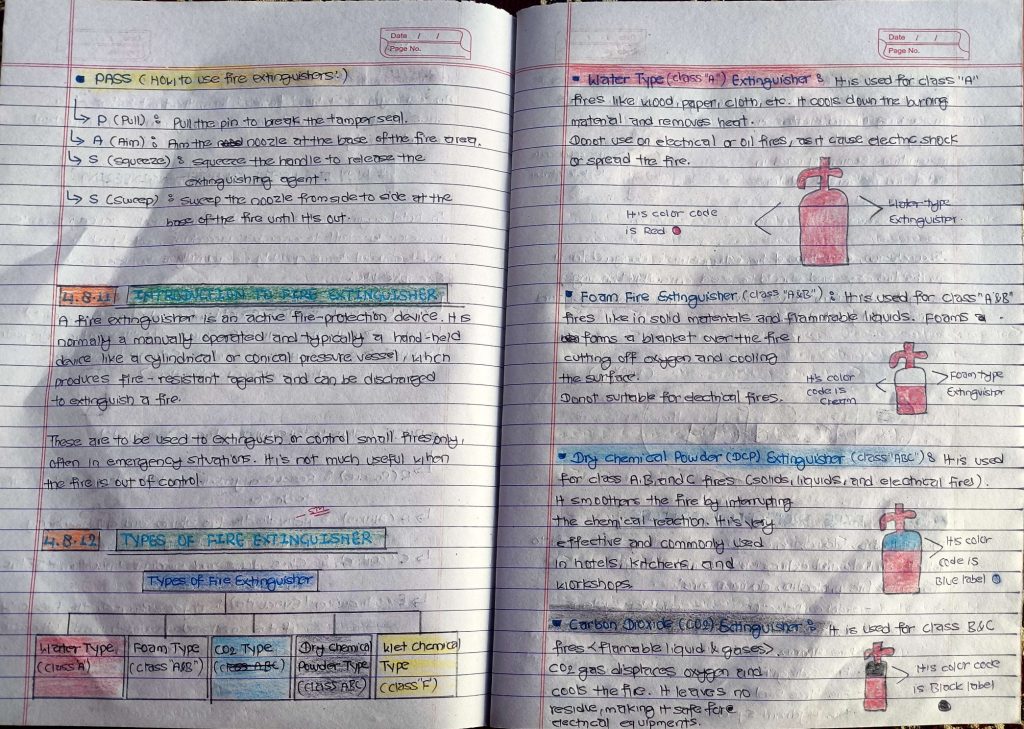 Date / /
Page No.
• PASS (How to use fire extinguishers:)
↳ P (Pull) : Pull the pin to break the tamper seal.
↳ A (Aim) : Aim the nozzle at the base of the fire area.
↳ S (Squeeze) : squeeze the handle to release the
extinguishing agent.
↳ S (Sweep) : Sweep the nozzle from side to side at the
base of the fire until it's out.
4.8.11 INTRODUCTION TO FIRE EXTINGUISHER
A fire extinguisher is an active fire-protection device. It is
normally a manually operated and typically a hand-held
device like a cylindrical or conical pressure vessel, which
produces fire-resistant agents and can be discharged
to extinguish a fire.
These are to be used to extinguish or control small fires only,
often in emergency situations. It is not much useful when
the fire is out of control.
4.8.12 TYPES OF FIRE EXTINGUISHER
Types of Fire Extinguisher
Water Type (class "A")
Foam Type (class "A&B")
CO2 Type (class ABC)
Dry chemical Powder Type (Class ABC)
Wet chemical Type (class "F")
Date / /
Page No.
• Water Type (class "A") Extinguisher : It is used for class "A"
fires like wood, paper, cloth, etc. It cools down the burning
material and removes heat.
Donot use on electrical or oil fires, as it cause electric shock
or spread the fire.
It's color code
is Red
Water type
Extinguisher.
• Foam Fire Extinguisher (class "A&B") : It is used for class "A&B"
fires like in solid materials and flammable liquids. Foams
forms a blanket over the fire,
cutting off oxygen and cooling
the surface.
Donot suitable for electrical fires.
It's color
code is
Cream
Foam type
Extinguisher
• Dry chemical Powder (DCP) Extinguisher (class "ABC") : It is used
for class A, B, and C fires (solids, liquids, and electrical fire).
It smoothers the fire by interrupting
the chemical reaction. It is very
effective and commonly used
in hotels, kitchens, and
workshops.
It's color
code is
Blue label
• Carbon Dioxide (CO2) Extinguisher : It is used for class B&C
fires <flammable liquid & gases>.
CO2 gas displaces oxygen and
cools the fire. It leaves no
residue, making it safe fore
electrical equipments.
It's color code
is Black label